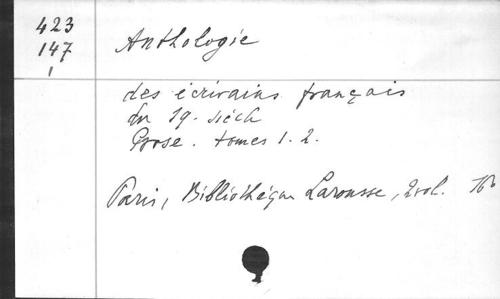 423
147
1
Anthologie
des écrivains français
du 19. siècle
Prose. tomes 1. 2.
Paris, Bibliothèque Larousse, 2vol.